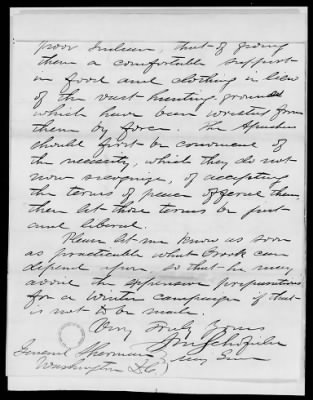 poor Indian, that of giving
them a comfortable support
in food and clothing in lieu
of the vast hunting grounds
which have been wrested from
them by force. The Apaches
should first be convinced of
the necessity, which they do not
now recognize, of accepting
the terms of peace offered them,
then let those terms be just
and liberal.
Please let me know as soon
as practicable what Crook can
depend upon, so that he may
avoid the expensive preparations
for a winter campaign if that
is not to be made.
Very truly yours
J M Schofield
Maj Genl
General Sherman
Washington D.C.